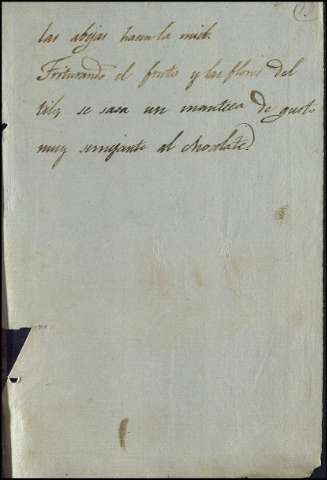 las abejas hacen la miel.
Triturando el fruto y las flores del
tilo, se saca un manteca de gusto
muy semejante al chocolate.